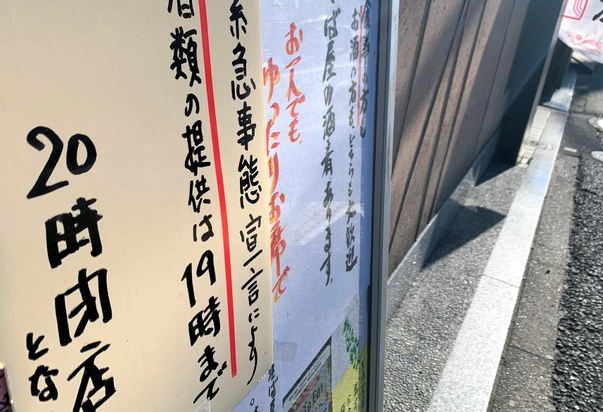 緊急事態宣言により
酒類の提供は19時まで
20時閉店
とな
食事の方も
お酒の方も、どちらも大歓迎
そば屋の酒有ります。
お一人でも、
ゆったりお席で